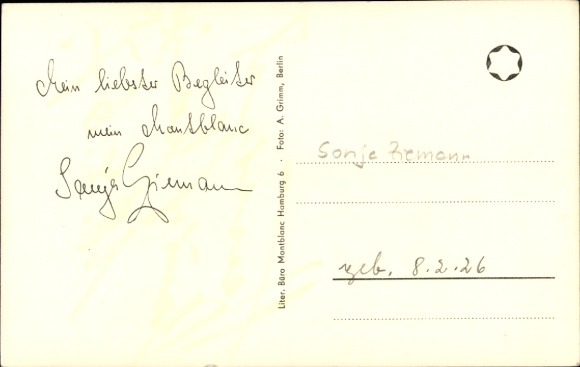 Mein liebster Begleiter
mein Montblanc
Sonja Ziemann
Liter. Büro Montblanc Hamburg 6 · Foto: A. Grimm, Berlin
Sonja Ziemann
geb. 8.2.26